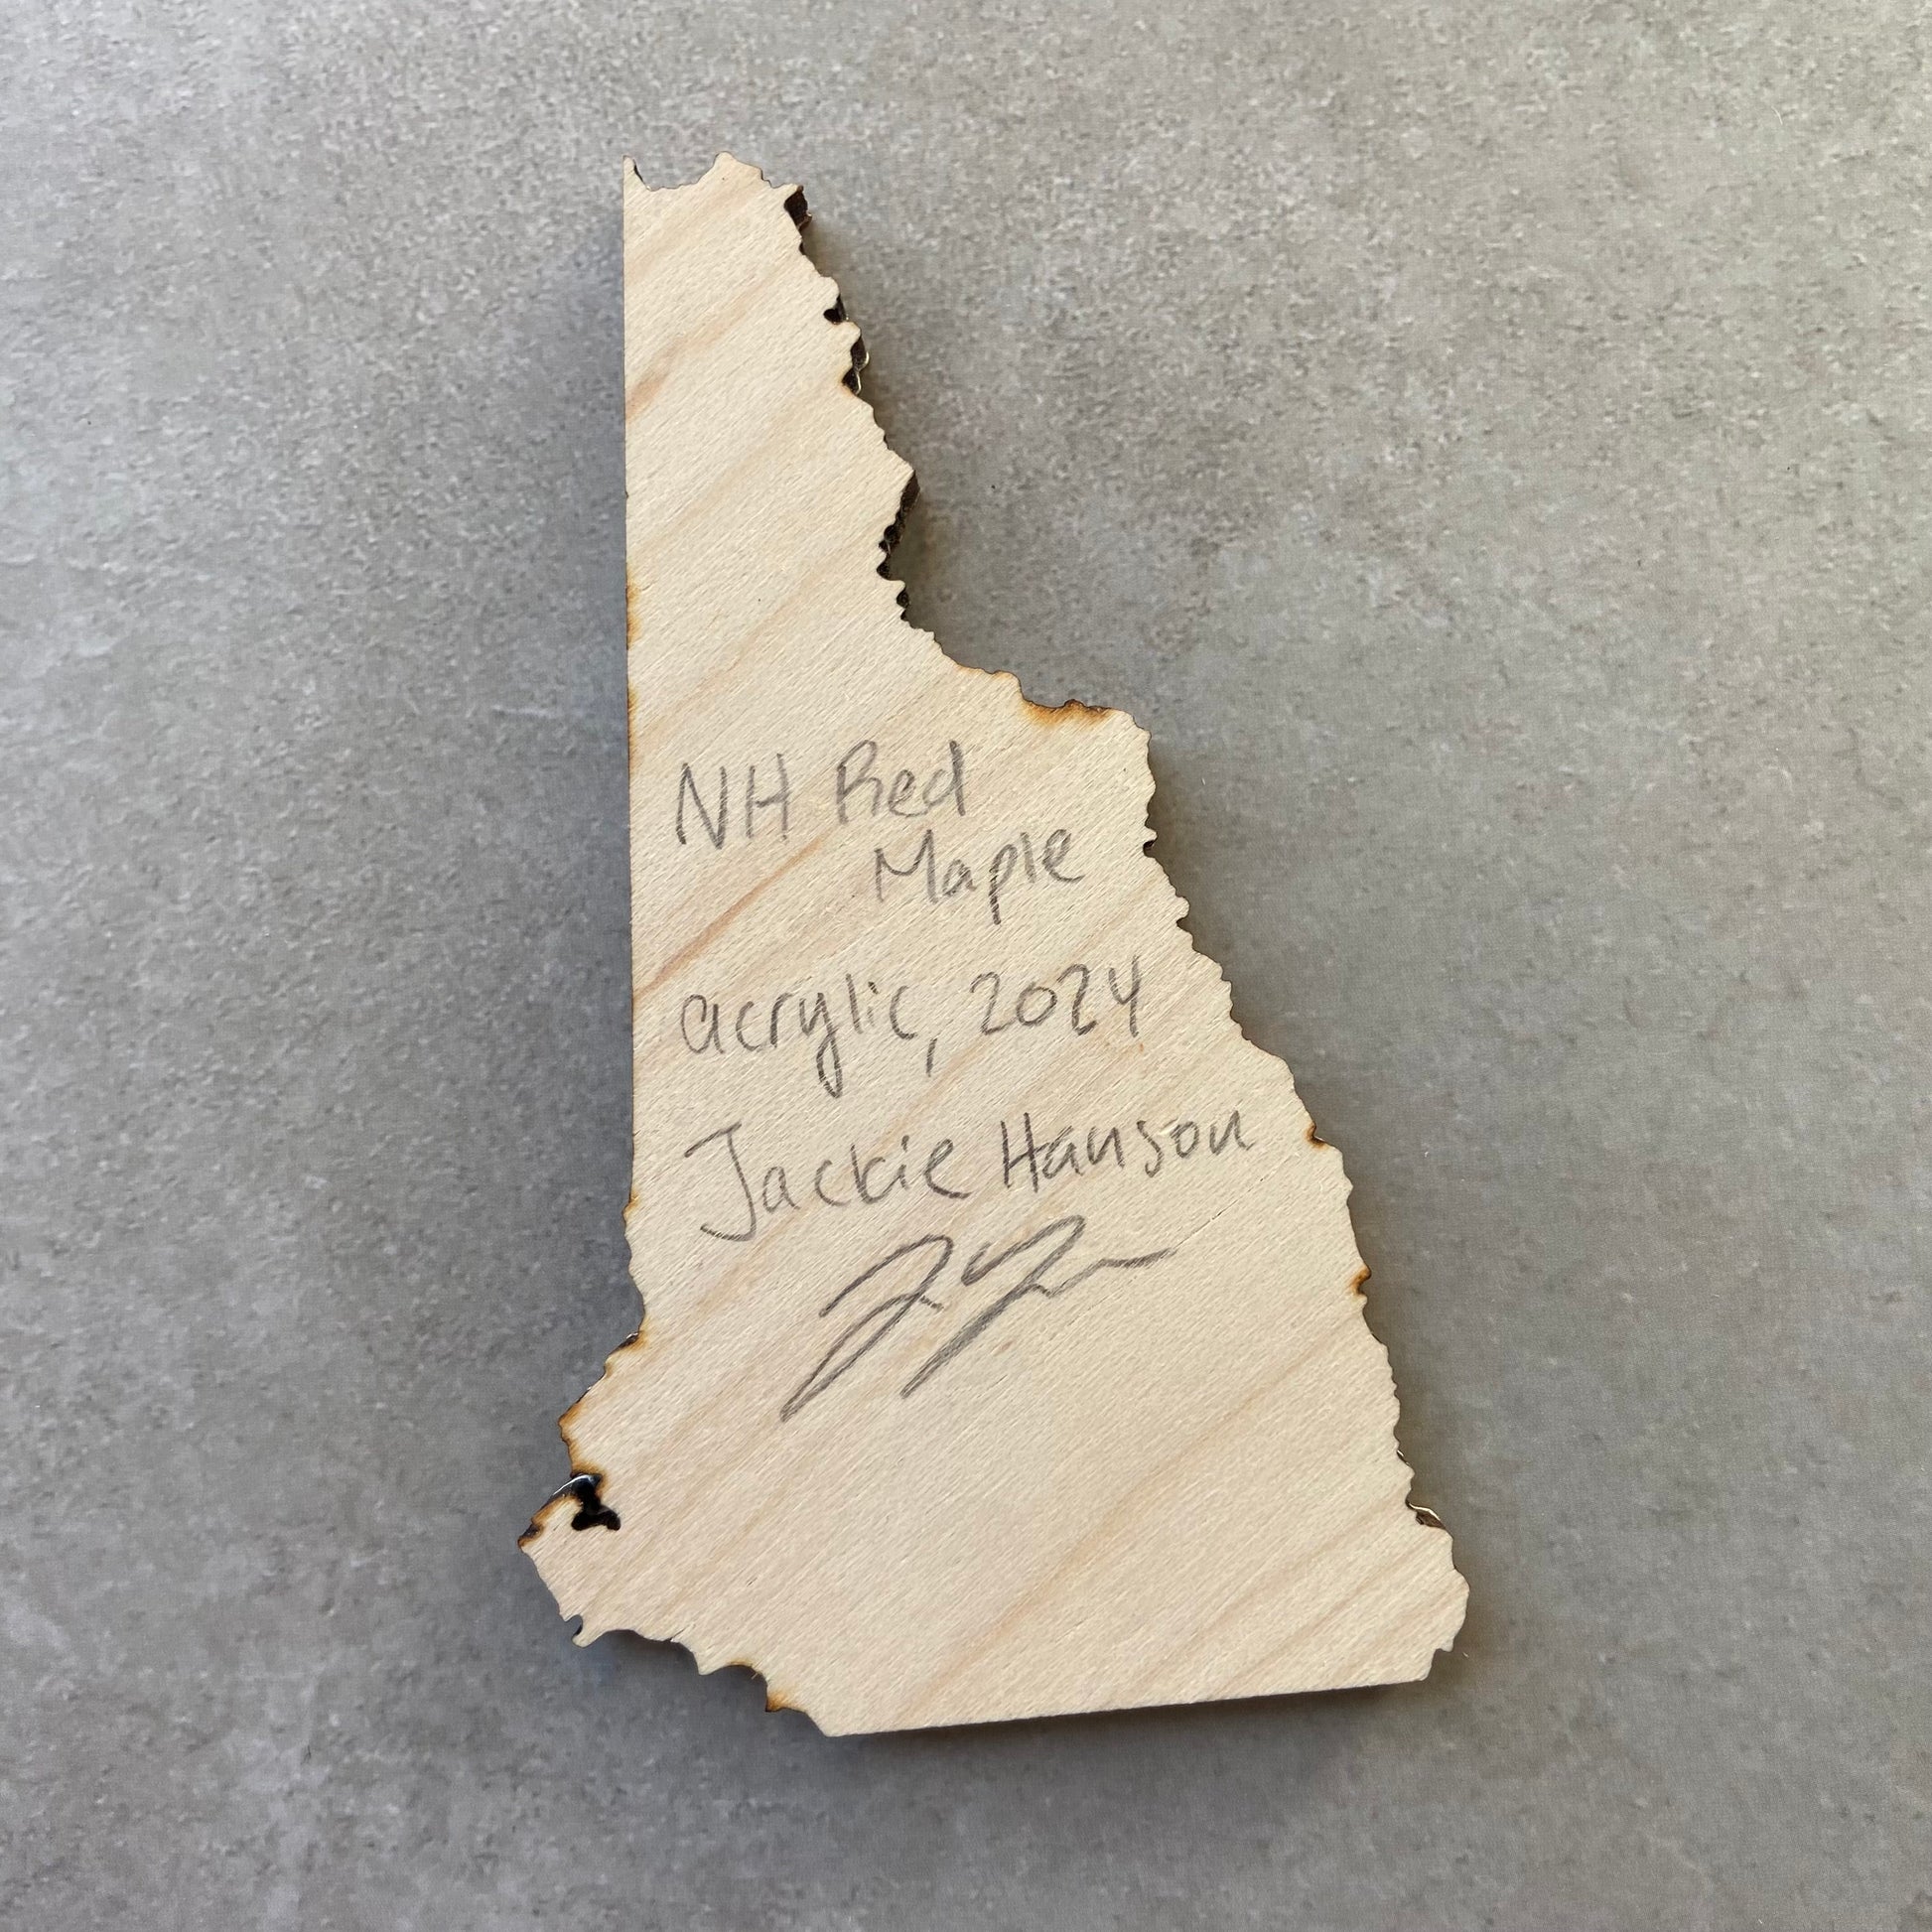 NH Red
Maple
acrylic, 2024
Jackie Hanson